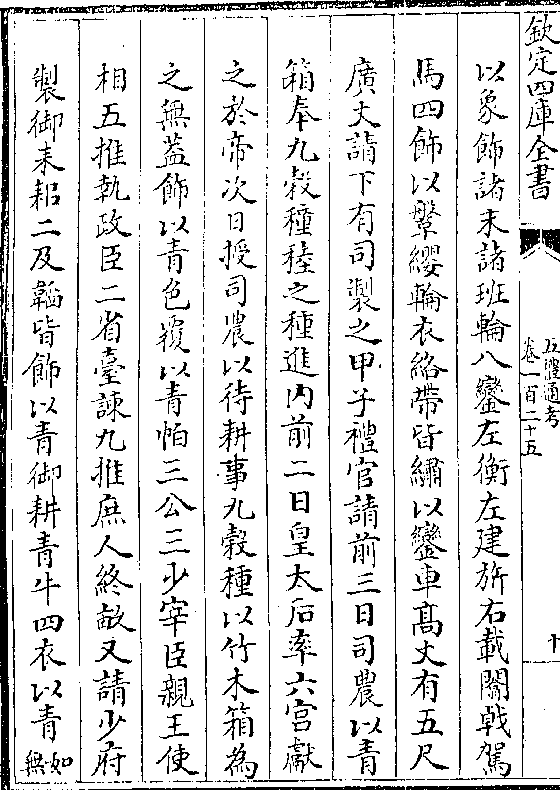 欽定四庫全書
五禮通考
卷一百二十五
十
以象飾諸末諸班輪八鑾左衡左建旂右載闟戟駕
馬四飾以鞶纓輪衣絡帶皆繡以鑾車髙丈有五尺
廣丈請下有司製之甲子禮官請前三日司農以青
箱奉九穀種稑之種進内前二日皇太后率六宮獻
之於帝次日授司農以待耕事九穀種以竹木箱為
之無蓋飾以青色覆以青帕三公三少宰臣親王使
相五推執政臣二省臺諫九推庶人終畝又請少府
製御耒耜二及韜皆飾以青御耕青牛四衣以青如無